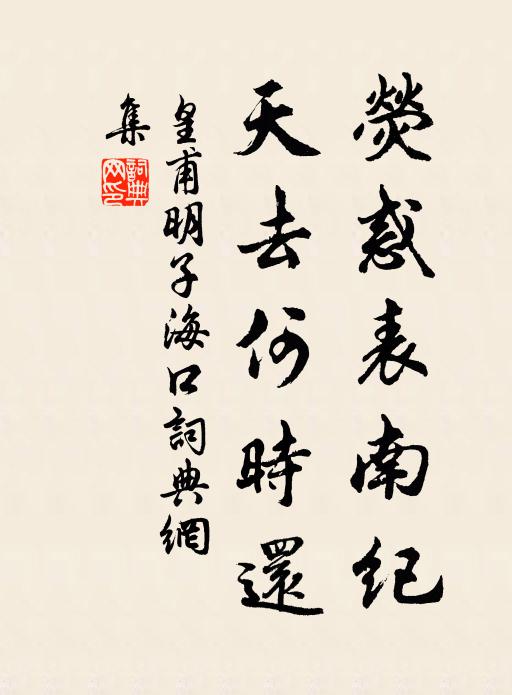 熒惑表南紀
天去何時還
皇甫明子海口詞典網
集
詞典網印